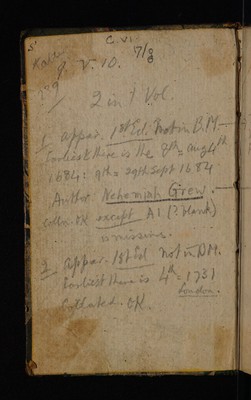 C. VI.
7/8
V. 10.
2 in 1 Vol.
1 appar. 1st Ed. Not in B.M.—
Earliest there is the 8th = Aug 4th
1684: 9th = 29th Sept 1684
Author Nehemiah Grew.
Colln. OK except A1 (? blank)
is missing.
2. appar. 1st Ed not in B.M.
Earliest there is 4th = 1731
London.
Collated. OK.